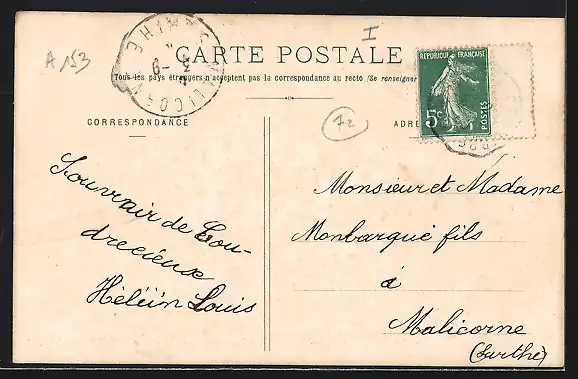 A 153
I
CARTE POSTALE
Tous les pays étrangers n'acceptent pas la correspondance au recto (Se renseigner
CORRESPONDANCE
72
ADRE
REPUBLIQUE FRANÇAISE
5c
POSTES
Souvenir de Cou-
drecieux
Héléin Louis
Monsieur et Madame
Monbarqué fils
à
Malicorne
(Sarthe)